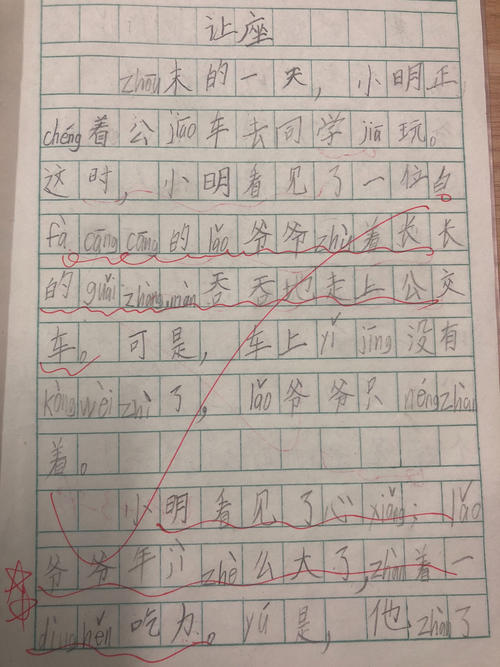 让座
zhōu末的一天，小明正
chéng着公jiāo车去同学jiā玩。
这时，小明看见了一位白
fà cāng cāng的lǎo爷爷zhù着长长
的guǎi zhàng màn吞吞地走上公交
车。可是，车上yǐ jīng没有
kòng wèi zhì了，lǎo爷爷只néng zhàn
着。
小明看见了心xiǎng：lǎo
爷爷年jì zhè么大了，zhàn着一
dìng hěn吃力。yú是，他zhàn了